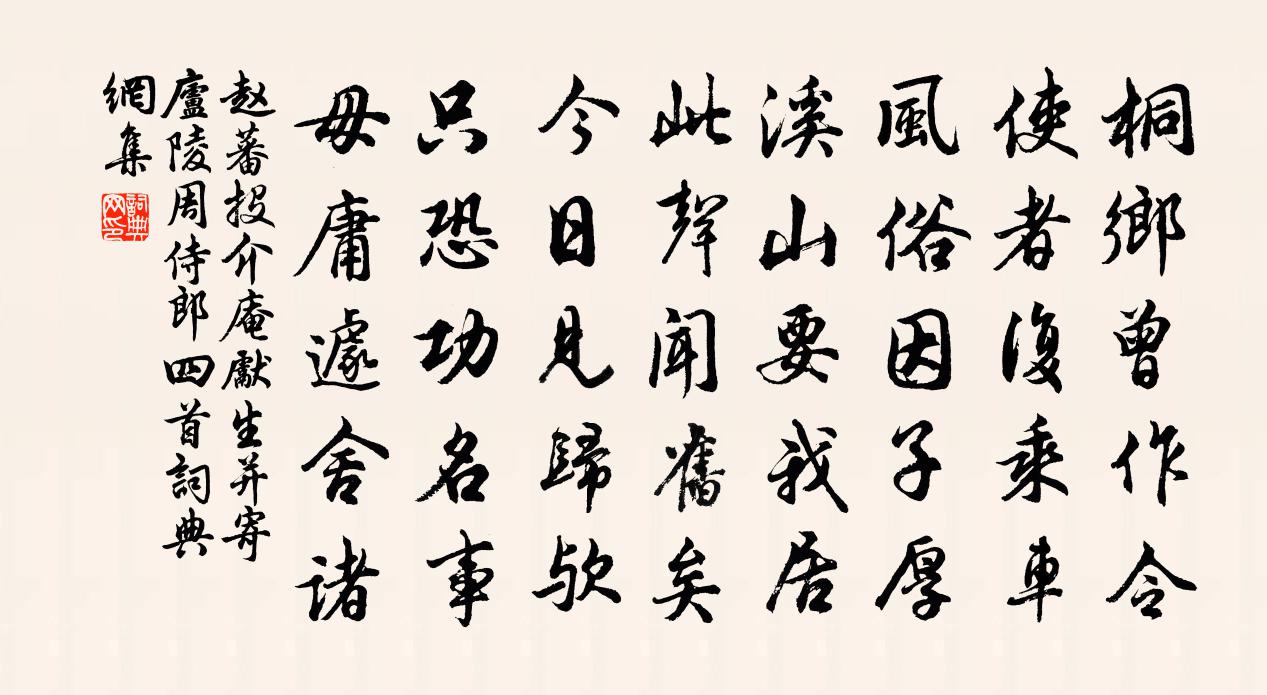 桐鄉曾作令
使者復乘車
風俗因子厚
溪山要我居
此聲聞舊矣
今日見歸歟
只恐功名事
毋庸遽舍諸
赵蕃投介庵獻生并寄
廬陵周侍郎四首詞典
網集
詞典网印